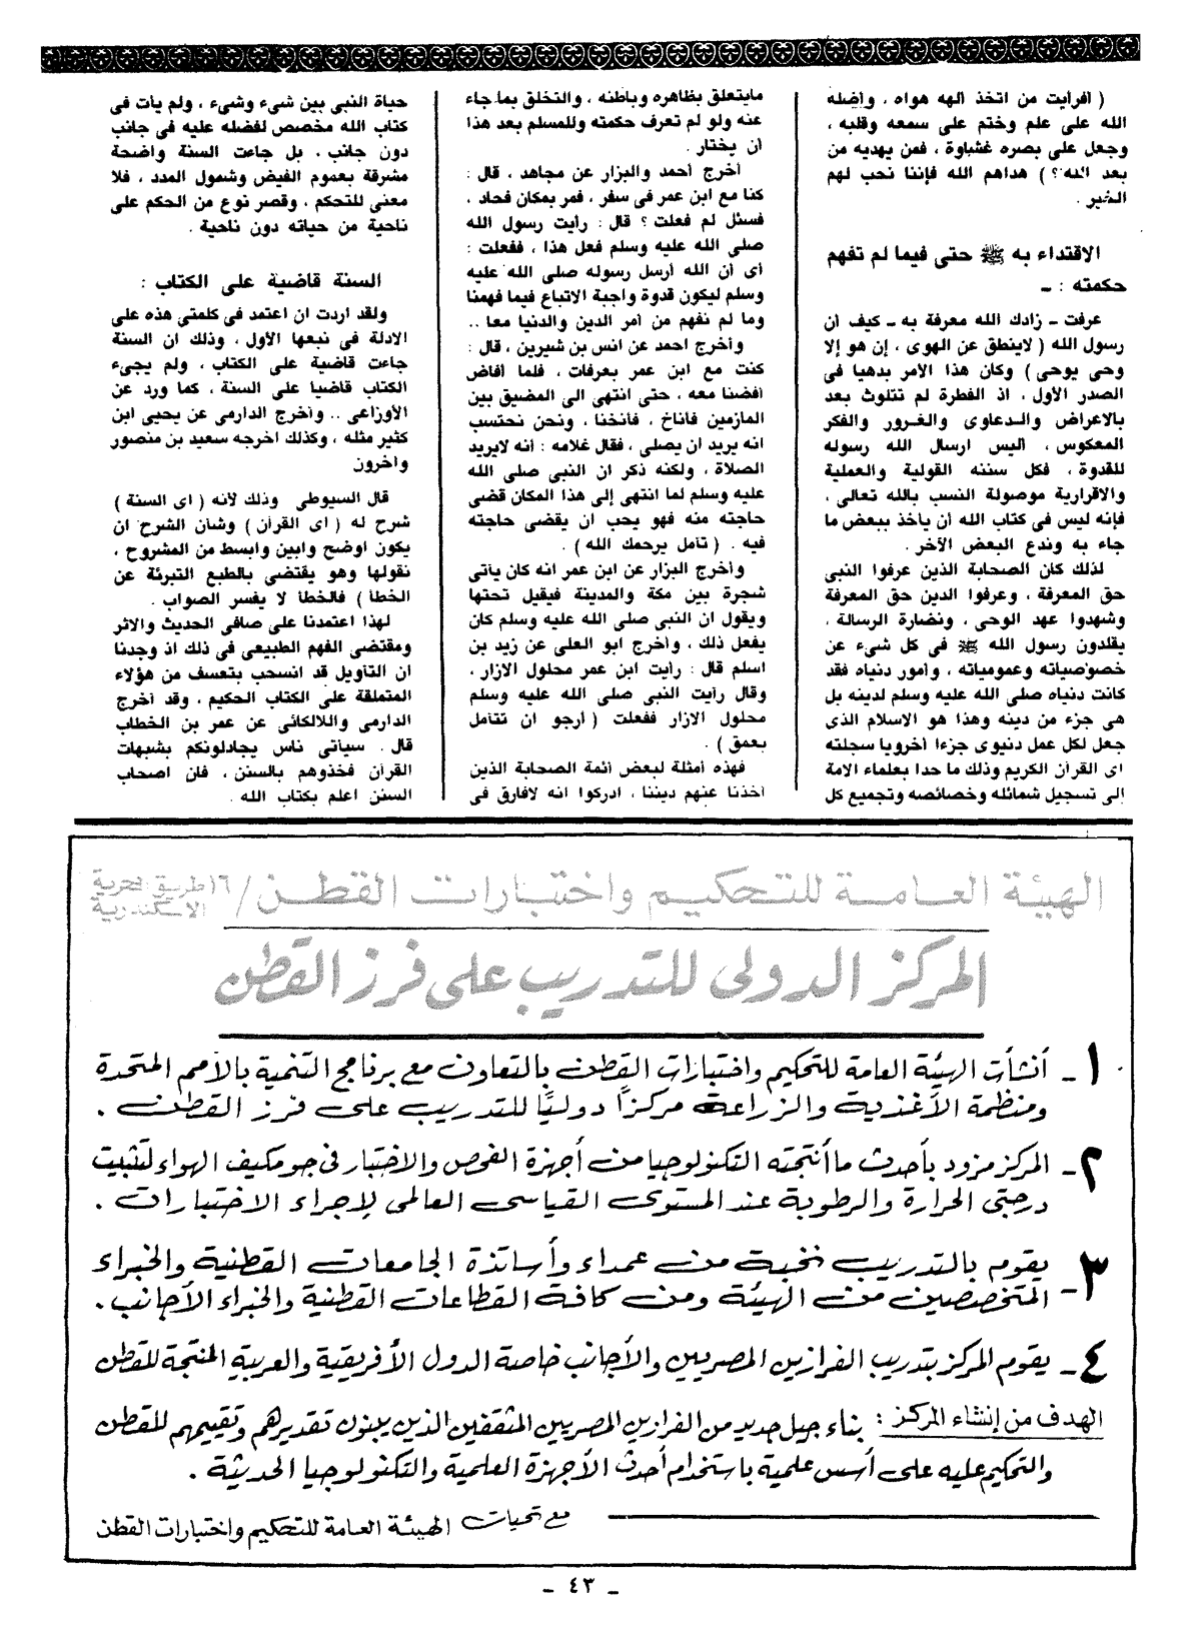 ( أفرأيت من اتخذ الهه هواه ، وأضله
الله على علم وختم على سمعه وقلبه ،
وجعل على بصره غشباوة ، فمن يهديه من
بعد الله ؟ ) هداهم الله فإننا نحب لهم
الخير .
الاقتداء به ﷺ حتى فيما لم تفهم
حكمته : ـ
عرفت ـ زادك الله معرفة به ـ كيف أن
رسول الله ( لاينطق عن الهوى ، إن هو إلا
وحى يوحى ) وكان هذا الأمر بدهيا فى
الصدر الأول ، اذ الفطرة لم تتلوث بعد
بالاعراض والدعاوى والغرور والفكر
المعكوس ، اليس ارسال الله رسوله
للقدوة ، فكل سننه القولية والعملية
والاقرارية موصولة النسب بالله تعالى ،
فإنه ليس فى كتاب الله أن يأخذ ببعض ما
جاء به وندع البعض الآخر .
لذلك كان الصحابة الذين عرفوا النبى
حق المعرفة ، وعرفوا الدين حق المعرفة
وشهدوا عهد الوحى ، ونضارة الرسالة ،
يقلدون رسول الله ﷺ فى كل شىء عن
خصوصياته وعمومياته ، وأمور دنياه فقد
كانت دنياه صلى الله عليه وسلم لدينه بل
هى جزء من دينه وهذا هو الاسلام الذى
جعل لكل عمل دنيوى جزءا أخرويا سجلته
اى القرآن الكريم وذلك ما حدا بعلماء الامة
إلى تسجيل شمائله وخصائصه وتجميع كل
مايتعلق بظاهره وباطنه ، والتخلق بما جاء
عنه ولو لم تعرف حكمته وللمسلم بعد هذا
ان يختار .
أخرج أحمد والبزار عن مجاهد ، قال :
كنا مع ابن عمر فى سفر ، فمر بمكان فحاد ،
فسئل لم فعلت ؟ قال : رأيت رسول الله
صلى الله عليه وسلم فعل هذا ، ففعلت :
أى أن الله أرسل رسوله صلى الله عليه
وسلم ليكون قدوة واجبة الاتباع فيما فهمنا
وما لم نفهم من أمر الدين والدنيا معا ..
وأخرج احمد عن انس بن شيرين ، قال :
كنت مع ابن عمر بعرفات ، فلما أفاض
أفضنا معه ، حتى انتهى الى المضيق بين
المازمين فأناخ ، فأنخنا ، ونحن نحتسب
انه يريد ان يصلى ، فقال غلامه : أنه لايريد
الصلاة ، ولكنه ذكر ان النبى صلى الله
عليه وسلم لما انتهى إلى هذا المكان قضى
حاجته منه فهو يحب ان يقضى حاجته
فيه . ( تأمل يرحمك الله ) .
وأخرج البزار عن ابن عمر انه كان يأتى
شجرة بين مكة والمدينة فيقيل تحتها
ويقول ان النبى صلى الله عليه وسلم كان
يفعل ذلك ، وأخرج ابو العلى عن زيد بن
اسلم قال : رأيت ابن عمر محلول الازار ،
وقال رأيت النبى صلى الله عليه وسلم
محلول الازار ففعلت ( أرجو ان تتأمل
بعمق ) .
فهذه أمثلة لبعض أئمة الصحابة الذين
أخذنا عنهم ديننا ، ادركوا انه لافارق فى
حياة النبى بين شىء وشىء ، ولم يات فى
كتاب الله مخصص لفضله عليه فى جانب
دون جانب ، بل جاءت السنة واضحة
مشرقة بعموم الفيض وشمول المدد ، فلا
معنى للتحكم ، وقصر نوع من الحكم على
ناحية من حياته دون ناحية .
السنة قاضية على الكتاب :
ولقد اردت ان اعتمد فى كلمتى هذه على
الادلة فى نبعها الأول ، وذلك ان السنة
جاءت قاضية على الكتاب ، ولم يجىء
الكتاب قاضيا على السنة ، كما ورد عن
الأوزاعى .. وأخرج الدارمى عن يحيى ابن
كثير مثله ، وكذلك اخرجه سعيد بن منصور
وأخرون
قال السيوطى وذلك لأنه ( اى السنة )
شرح له ( اى القرأن ) وشأن الشرح ان
يكون اوضح وابين وابسط من المشروح ،
نقولها وهو يقتضى بالطبع التبرئة عن
الخطا ) فالخطا لا يفسر الصواب .
لهذا اعتمدنا على صافى الحديث والاثر
ومقتضى الفهم الطبيعى فى ذلك اذ وجدنا
ان التأويل قد انسحب بتعسف من هؤلاء
المتملقة على الكتاب الحكيم ، وقد أخرج
الدارمى واللالكائى عن عمر بن الخطاب
قال . سيأتى ناس يجادلونكم بشبهات
القرأن فخذوهم بالسنن ، فان اصحاب
السنن اعلم بكتاب الله .
الهيئة العامة للتحكيم واختبارات القطن / ١٦ طريق الحرية
الاسكندرية
المركز الدولى للتدريب على فرز القطن
١ـ أنشأت الهيئة العامة للتحكيم واختبارات القطن بالتعاون مع برنامج التنمية بالأمم المتحدة
ومنظمة الأغذية والزراعة مركزاً دوليًا للتدريب على فرز القطن .
٢ـ المركز مزود بأحدث ما أنتجته التكنولوجيا من أجهزة الفحص والاختبار فى جو مكيف الهواء لتثبيت
درجتى الحرارة والرطوبة عند المستوى القياسى العالمى لإجراء الاختبارات .
٣ـ يقوم بالتدريب نخبة من عمداء وأساتذة الجامعات القطنية والخبراء
المتخصصين من الهيئة ومن كافة القطاعات القطنية والخبراء الأجانب .
٤ـ يقوم المركز بتدريب الفرازين المصريين والأجانب خاصة الدول الأفريقية والعربية المنتجة للقطن
الهدف من إنشاء المركز : بناء جيل جديد من الفرازين المصريين المثقفين الذين يبنون تقديرهم وتقييمهم للقطن
والتحكيم عليه على أسس علمية باستخدام أحدث الأجهزة العلمية والتكنولوجيا الحديثة .
مع تحيات الهيئة العامة للتحكيم واختبارات القطن
ـ ٤٣ ـ